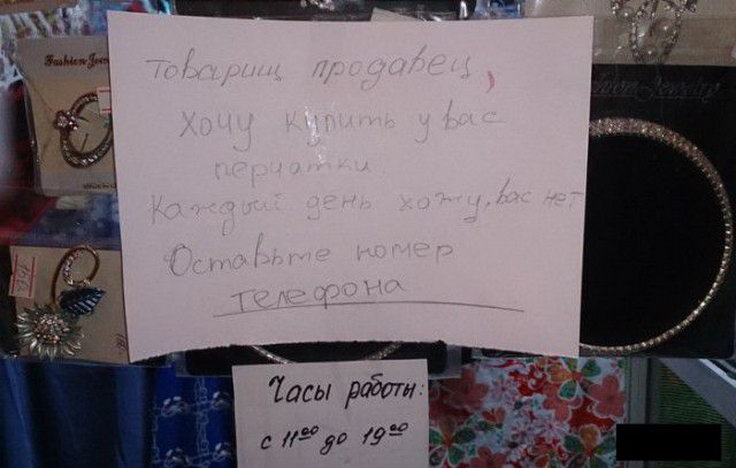 Fashion Jew
Товарищ продавец,
Хочу купить у вас
перчатки.
Каждый день хожу, вас нет
Оставьте номер
телефона
Часы работы:
с 11⁰⁰ до 19⁰⁰